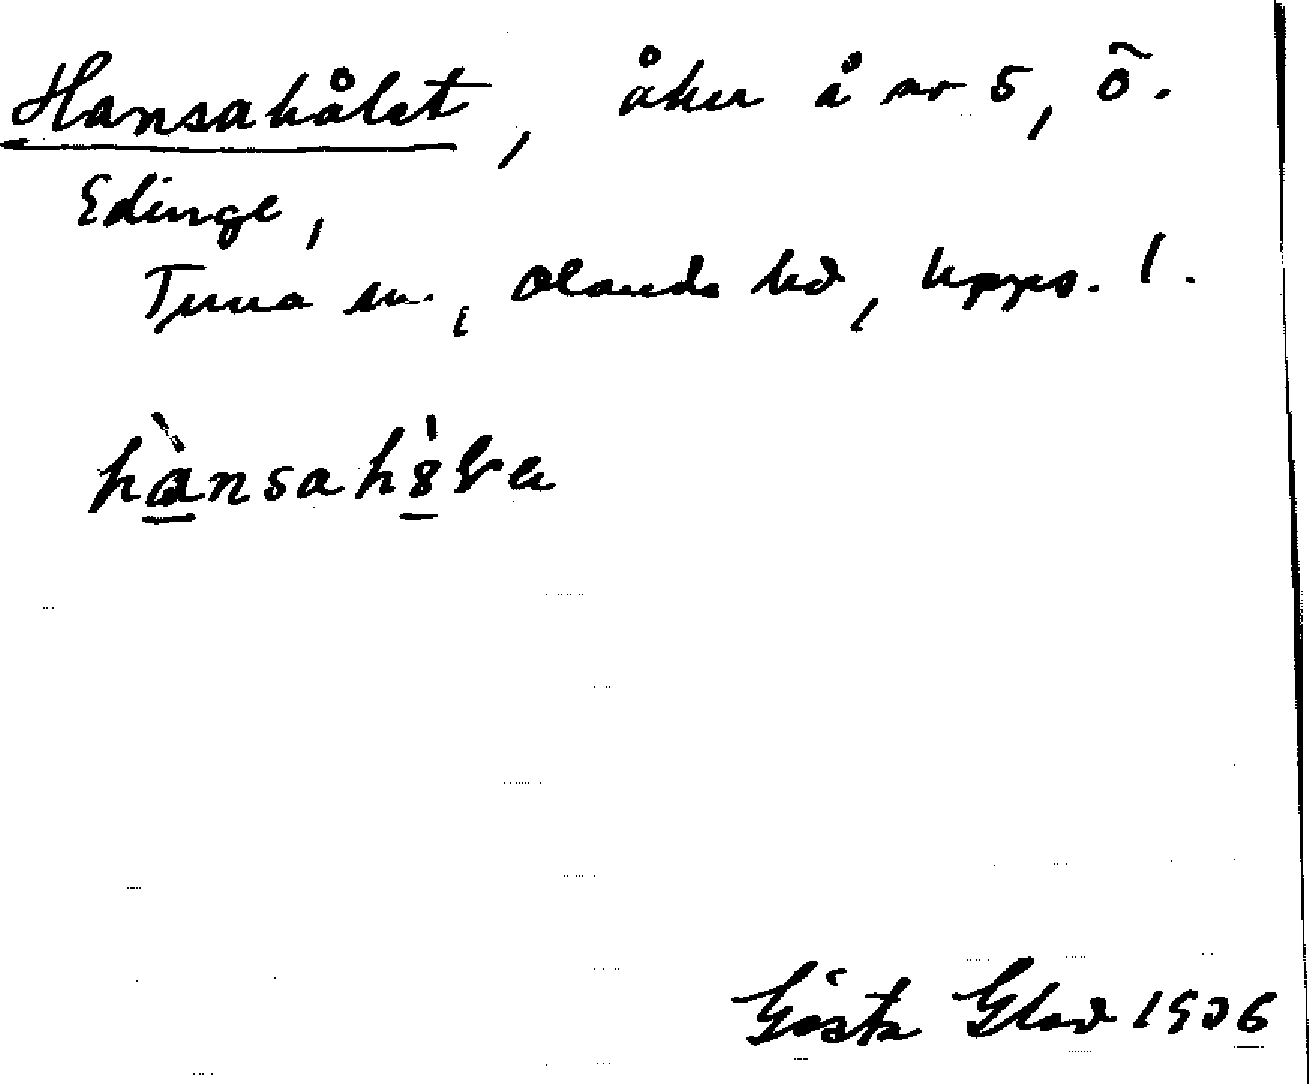 Hansahålet, åker å nr 5, Ö.
Edinge,
Tuna sn., Olands hd, Upps. l.
Gösta Glad 1936